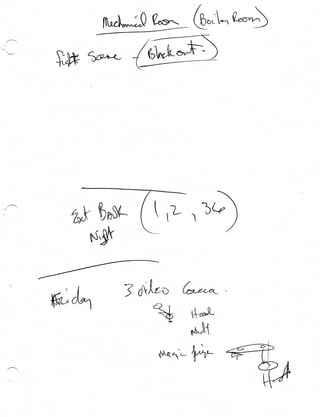 Mechanical Room (Boiler Room)
fight Scene - (Blackout.)
Ext Bank (1, 2, 36)
Night
Friday 3 video Camera.
Head
Magic